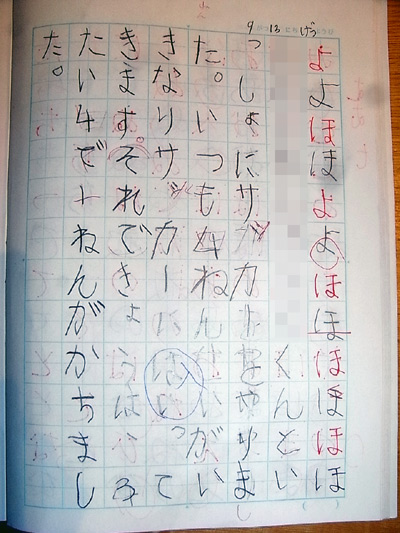 9がつ13にちげつようび
よよほほよよほほほほほほ
くんとい
っしょにサッカーをやりまし
た。いつも4ねんせいがい
きなりサッカーにはいって
きます。それできょうは、3
たい4で1ねんがかちまし
た。